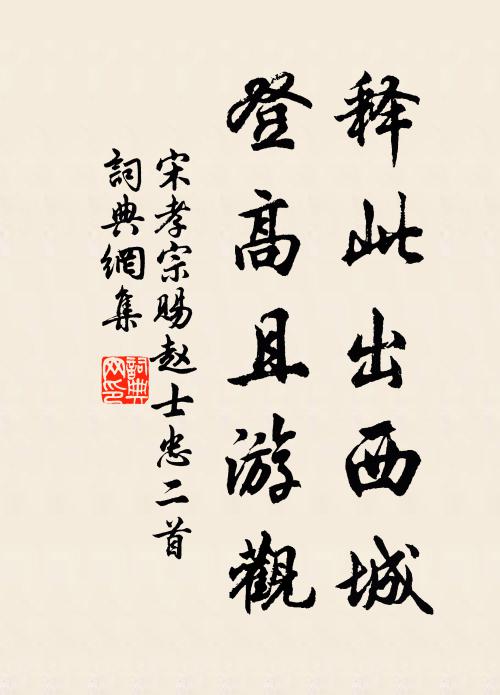 释此出西城
登高且游觀
宋孝宗賜赵士忠二首
詞典網集
詞典网印